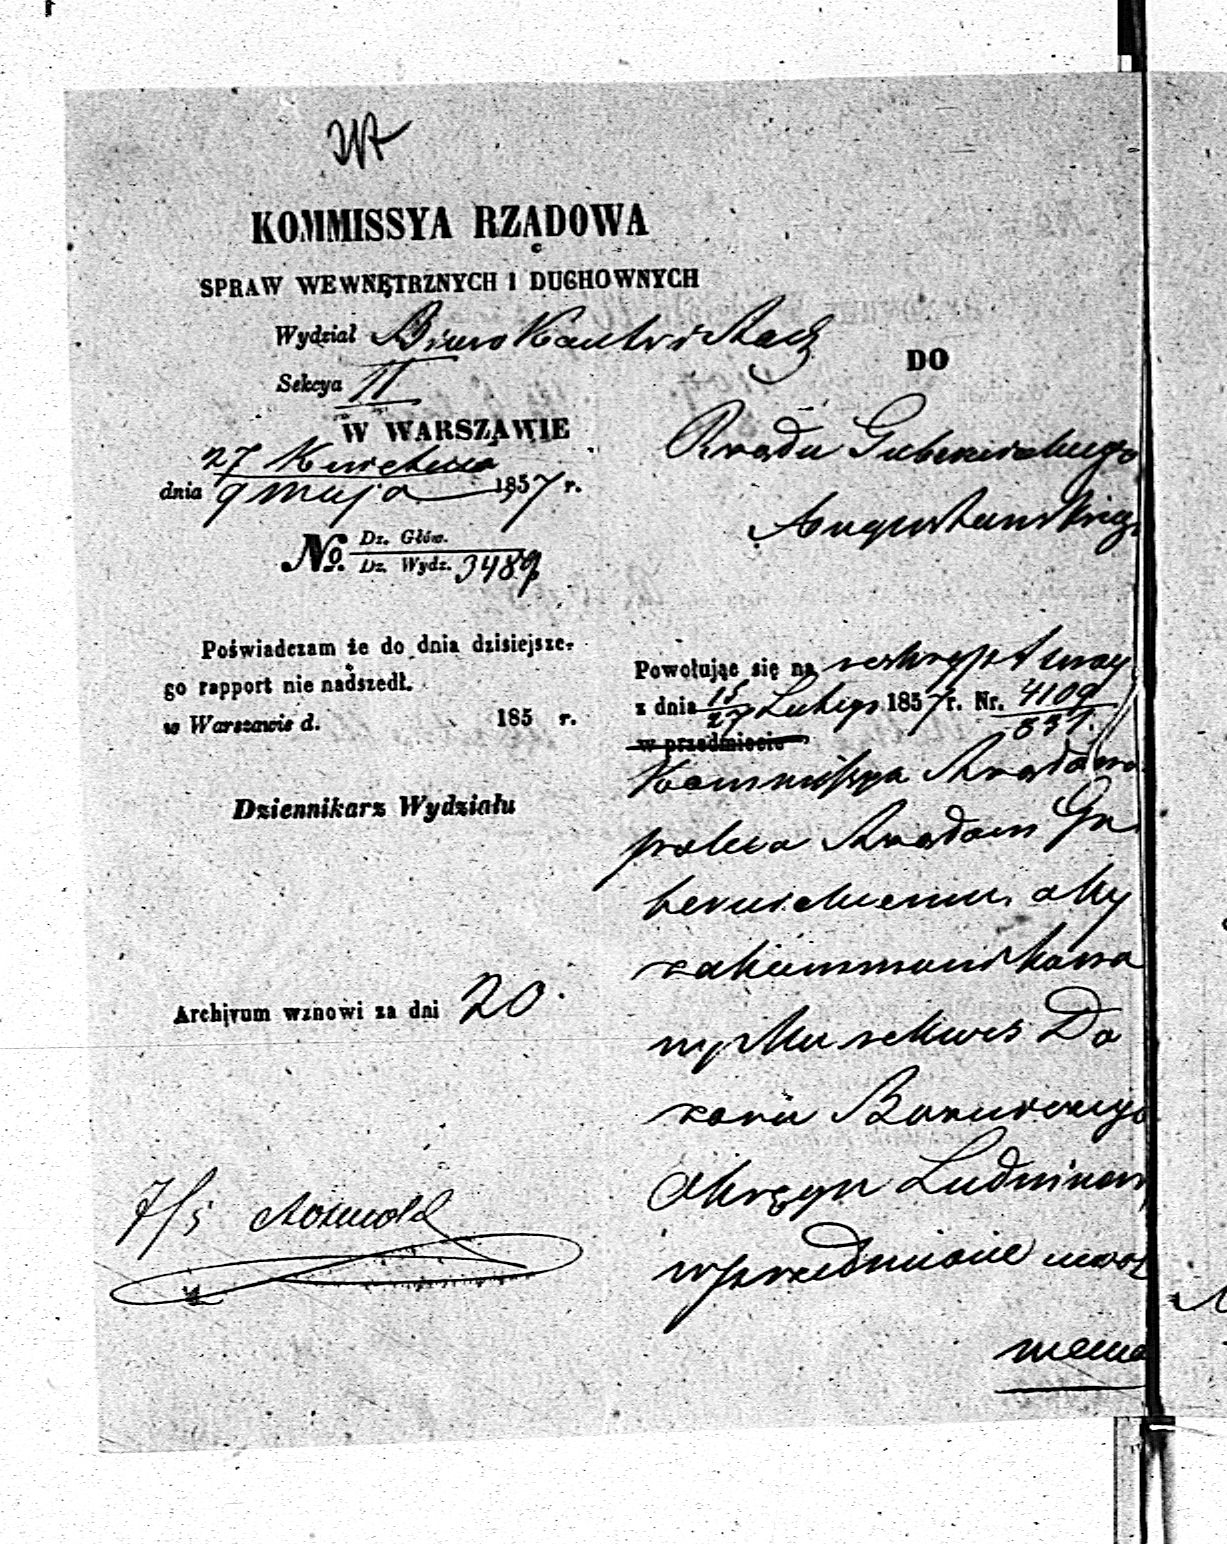 KOMMISSYA RZĄDOWA
SPRAW WEWNĘTRZNYCH I DUCHOWNYCH
Wydział Biuro Kontroli
Sekcya II
W WARSZAWIE
27 Kwietnia
dnia 9 Maja 1857 r.
No. Dz. Głów.
Dz. Wydz. 3489
Poświadczam że do dnia dzisiejsze-
go rapport nie nadszedł.
w Warszawie d. 185 r.
Dziennikarz Wydziału
Archivum wznowi za dni 20.
7/5
DO
Rządu Gubernialnego
Augustowskiego
Powołując się na reskrypt swój
z dnia 15/27 Lutego 1857 r. Nr. 4109/837.
w przedmiocie
Kommissya Rządowa
poleca Rządowi Gu
bernialnemu, aby
zakommunikowa
ny Mu rekurs Do
zoru Bożniczego
Okręgu Ludwinow
w przedmiocie